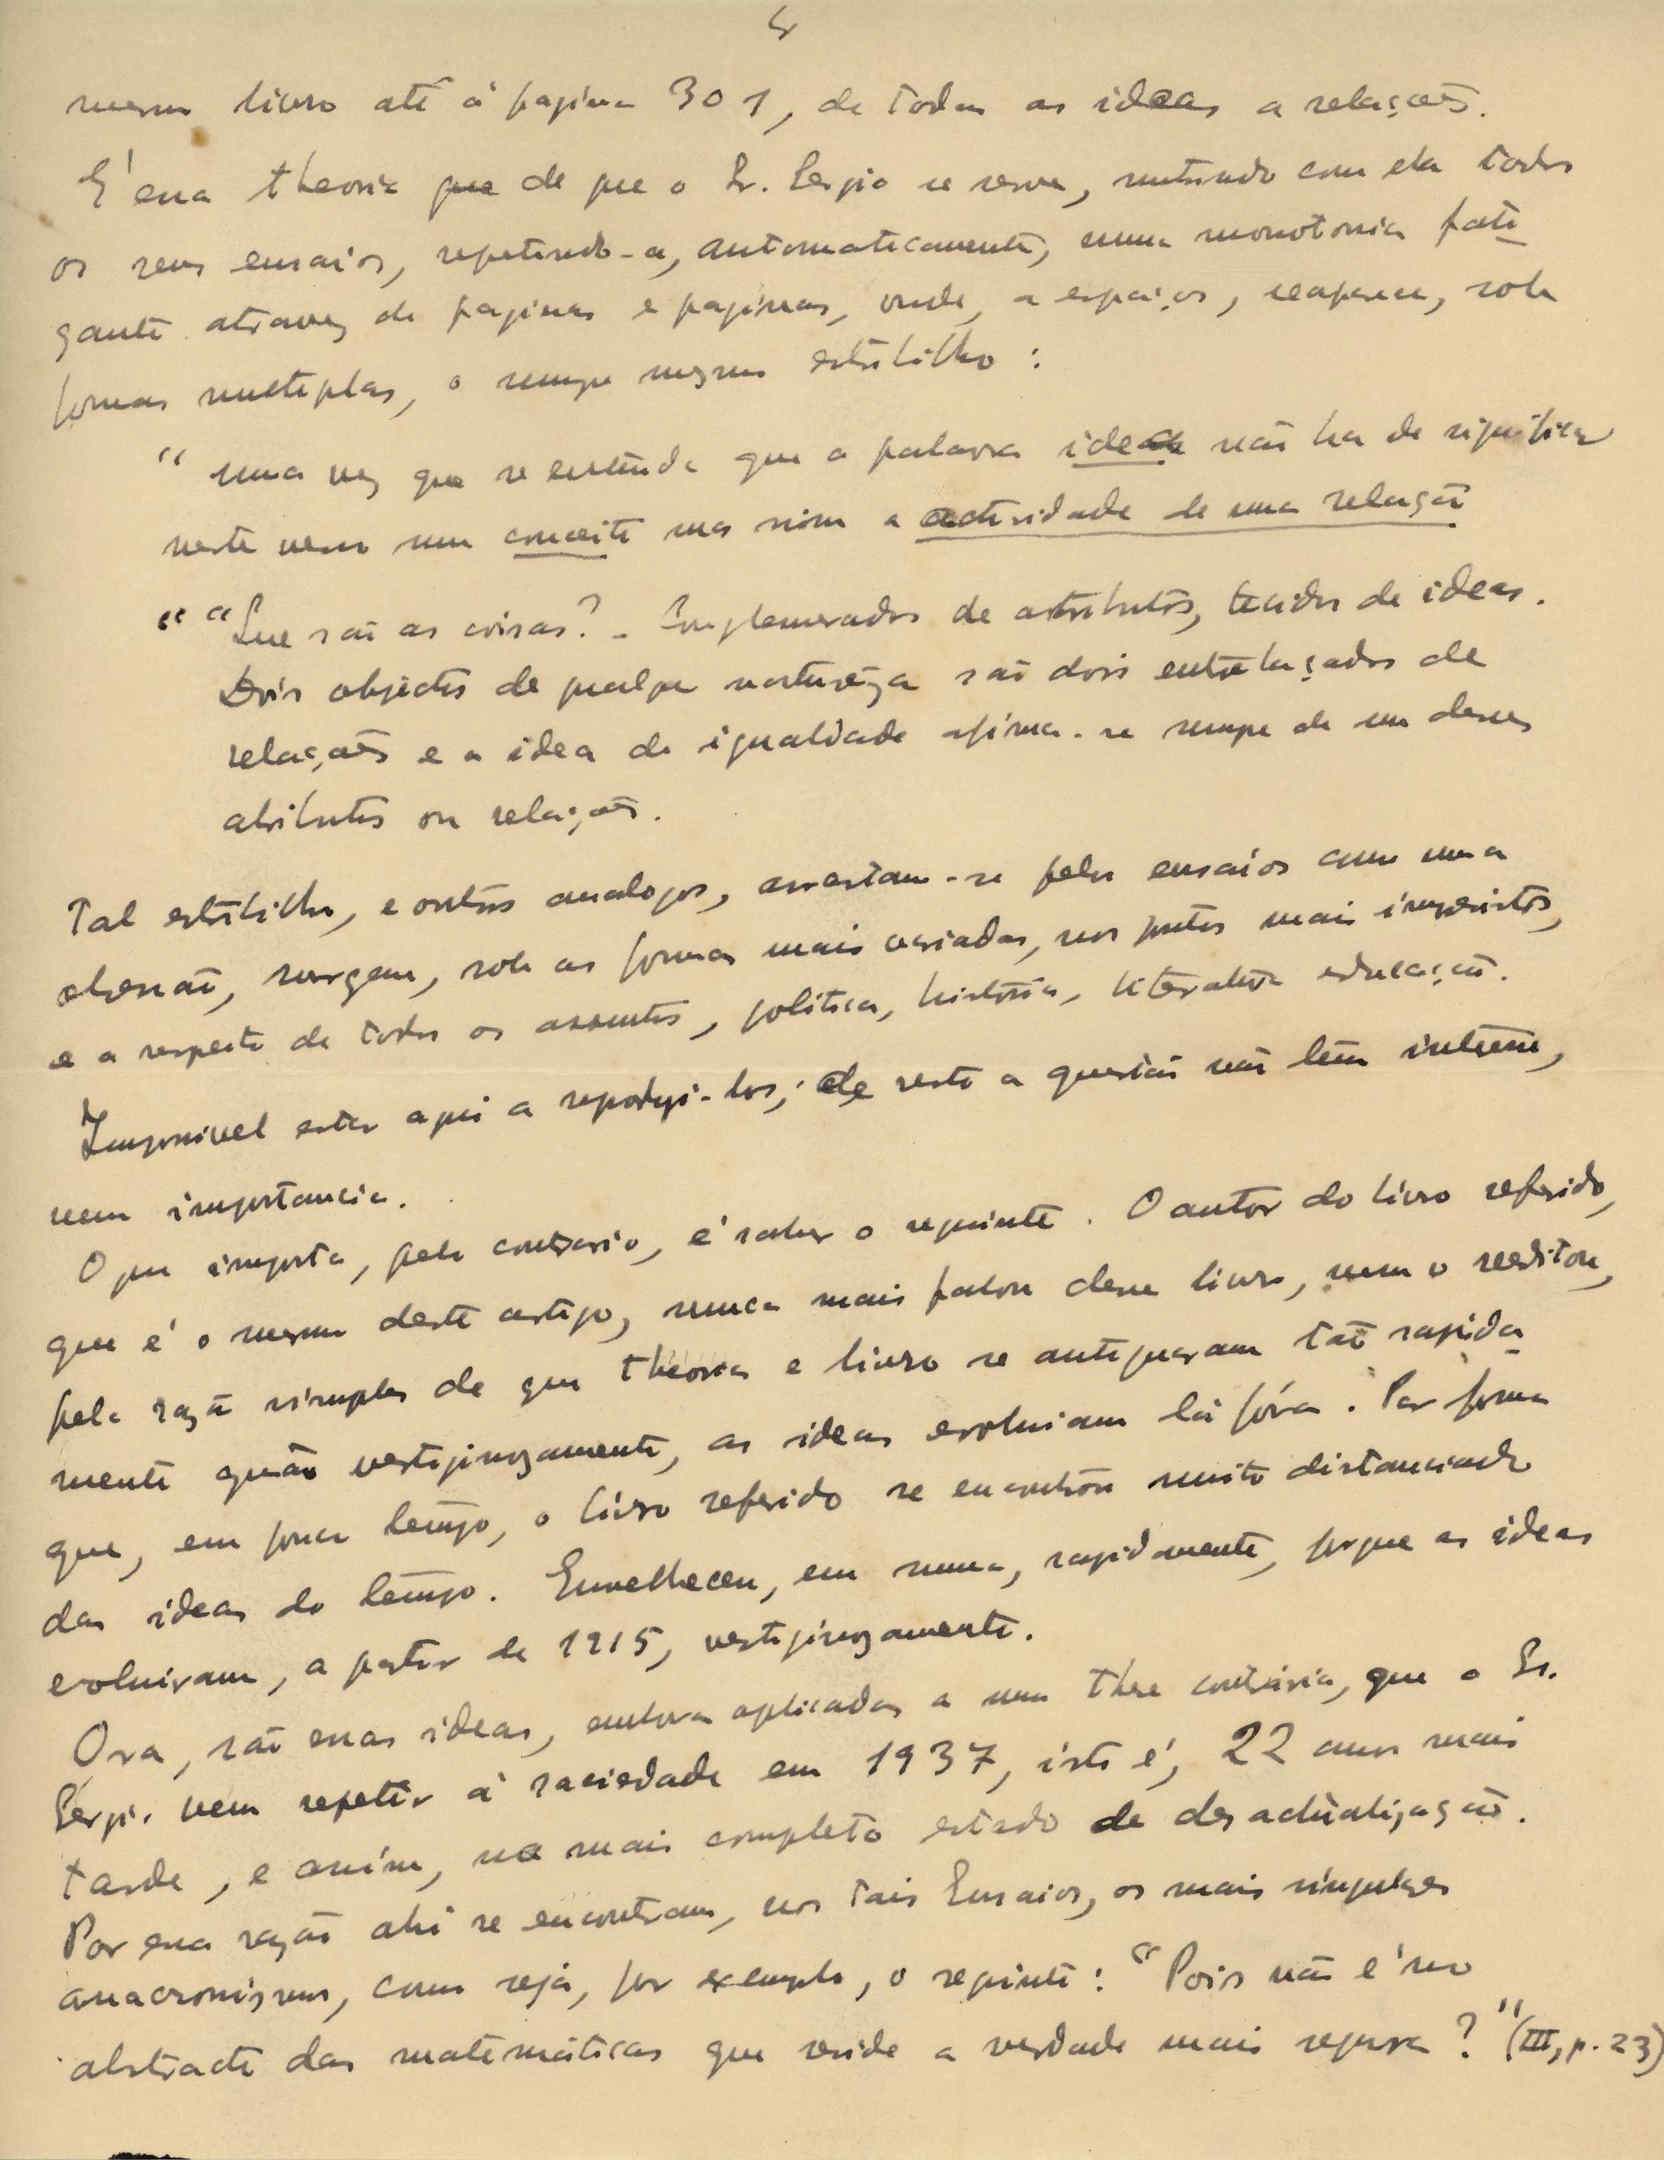 4
mesmo livro até á pagina 301, de todas as ideas a relações.
É essa theoria que de que o Sr. Sergio se serve, nutrindo com ela todos
os seus ensaios, repetindo-a, automaticamente, numa monotonia fati-
gante atravez de paginas e paginas, onde, a espaços, reaparece, sob
formas multiplas, o sempre mesmo estribilho:
" uma vez que se entenda que a palavra idea não ha de significar
neste verso um conceito mas sim a actividade de uma relação
" "Que são as coisas? - Conglomerados de atributos, tecidos de ideas.
Dois objectos de qualquer natureza são dois entrelaçados de
relações e a idea de igualdade afirma-se sempre de um desses
atributos ou relações.
Tal estribilho, e outros analogos, arrastam-se pelos ensaios como uma
obsessão, surgem, sob as formas mais variadas, nos pontos mais imprevistos,
e a respeito de todos os assuntos, politica, história, literatura educação.
Impossivel estar aqui a reproduzi-los; de resto a questão não tem interesse,
nem importancia.
O que importa, pelo contrario, é saber o seguinte. O autor do livro referido,
que é o mesmo deste artigo, nunca mais falou desse livro, nem o reeditou,
pela razão simples de que theoria e livro se antiquaram tão rapida-
mente quão vertiginozamente, as ideas evoluiam lá fóra. Por forma
que, em pouco tempo, o livro referido se encontrou muito distanciado
das ideas do tempo. Envelheceu, em suma, rapidamente, porque as ideas
evoluiram, a partir de 1915, vertiginozamente.
Ora, são essas ideas, embora aplicadas a uma these contrária, que o Sr.
Sérgio vem repetir á saciedade em 1937, isto é, 22 anos mais
tarde, e assim, no mais completo estado de desactualização.
Por essa razão ahi se encontram, nos tais Ensaios, os mais singulares
anacronismos, como seja, por exemplo, o seguinte: "Pois não é no
abstracto das matemáticas que reside a verdade mais segura?" (III, p. 23)